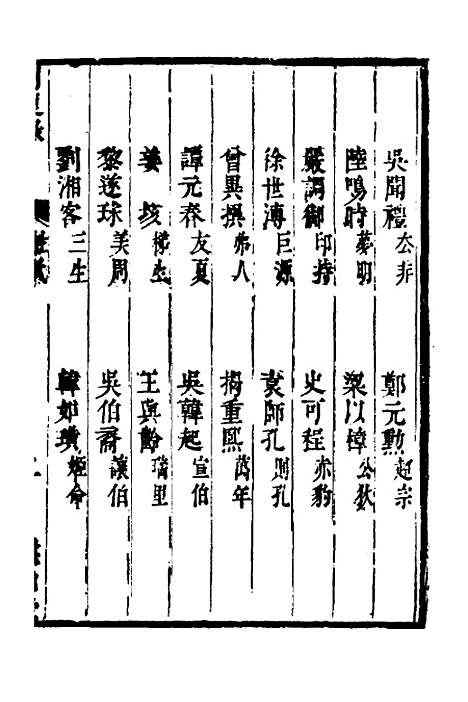 吳聞禮 去非 鄭元勲 超宗
陸鳴時 夢明 梁以樟 公狄
嚴調御 印持 史可程 赤豹
徐世溥 巨源 袁師孔 則孔
曾異撰 弗人 揭重熙 萬年
譚元春 友夏 吳韓起 宣伯
姜垓 王與齡 瑞里
黎遂球 美周 吳伯裔 讓伯
劉湘客 三生 韓如璜 姬命